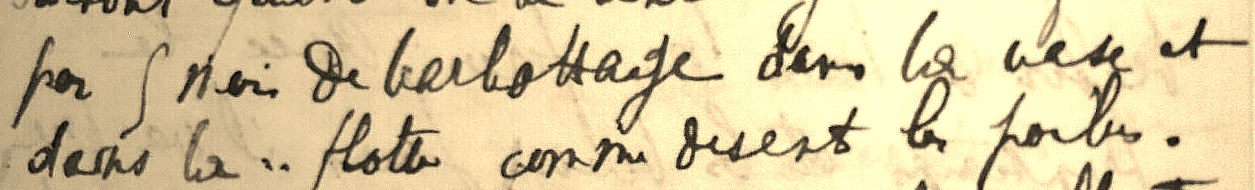 par 5 mois de barbottage dans la vase et
dans la .. flotte comme disent les poilus.